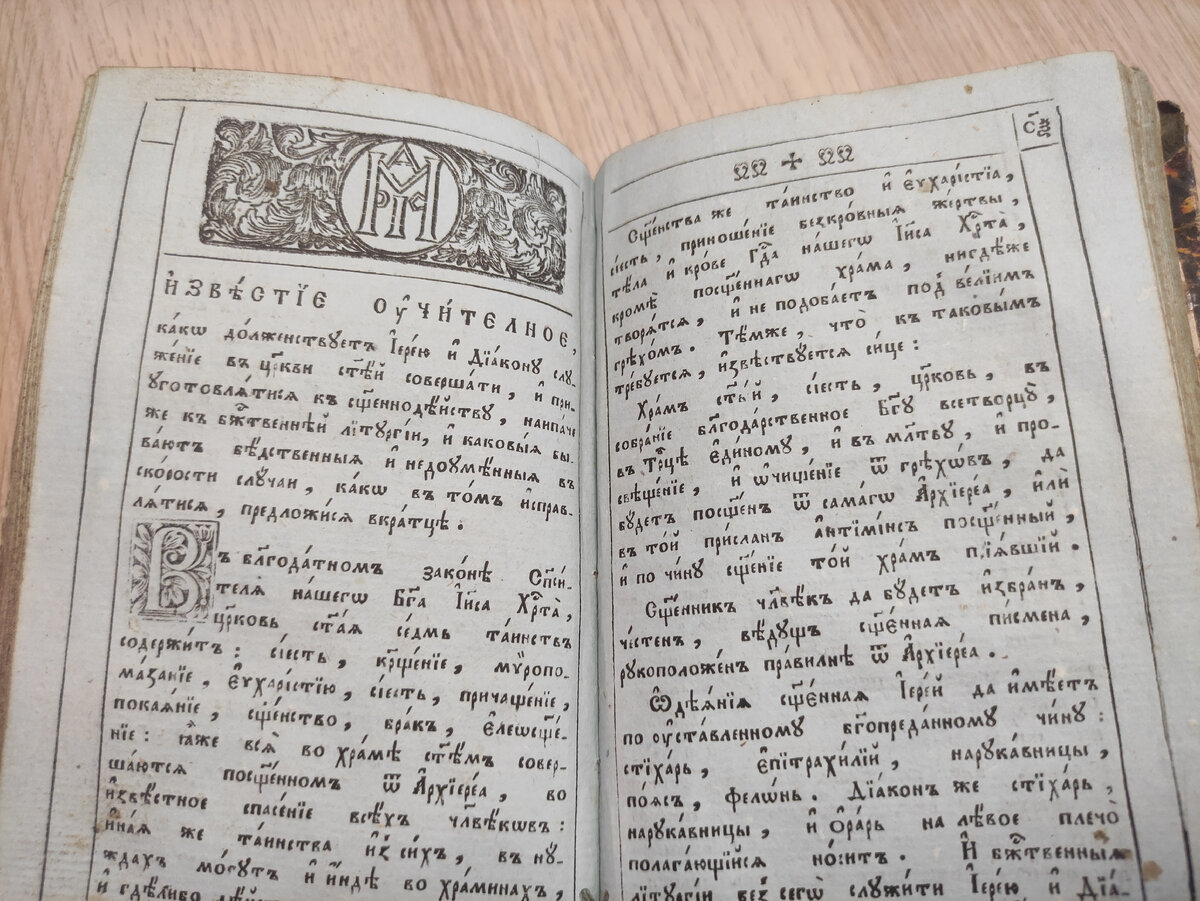 МАРІН
И҆ЗВѢ́СТЇЕ ОУ҆ЧИ́ТЕЛНОЕ,
ка́кѡ до́лженствꙋетъ І҆ере́ю и҆ Дїа́конꙋ слꙋ-
же́нїе въ цр҃кви ст҃ѣ́й соверша́ти, и҆ при-
ꙋготовлѧ́тисѧ къ сщ҃еннодѣ́йствꙋ, наипа́че
же къ бж҃твеннѣй лїтꙋргі́и, и҆ каковы́ѧ бы-
ва́ютъ бѣ́дственныѧ и҆ недоꙋмѣ́нныѧ въ
ско́рости слꙋ́чаи, ка́кѡ въ то́мъ и҆справ-
лѧ́тисѧ, предложи́сѧ вкра́тцѣ.
Въ бл҃года́тномъ зако́нѣ Сп҃си́-
телѧ на́шегѡ Бг҃а І҆и҃са Хрⷭ҇та̀,
цр҃ковь ст҃а́ѧ се́дмь та́инствъ
содержи́тъ: сі́есть, крщ҃е́нїе, мѵропо-
ма́занїе, Е҆ѵхарі́стїю, сі́есть, причаще́нїе,
покаѧ́нїе, сщ҃е́нство, бра́къ, Е҆леѡсщ҃е́-
нїе: ꙗ҆́же всѧ̑ во хра́мѣ ст҃ѣ́мъ совер-
ша́ютсѧ посщ҃е́нномъ ѿ А҆рхїере́а, во
и҆звѣ́стное спасе́нїе всѣ́хъ чл҃вѣ́кѡвъ:
и҆на́ѧ же та́инства и҆з̾ си́хъ, въ нꙋ́-
ждахъ мо́гꙋтъ и҆ и҆ндѣ̀ во хра́минахъ,
и҆ гдѣ́либо
С҃н
ѾѾ ✢ ѾѾ
Сщ҃е́нства же та́инство и҆ Е҆ѵхарі́стїа,
сі́есть, приноше́нїе безкро́вныѧ же́ртвы,
тѣ́ла и҆ кро́ве Гдⷭ҇а на́шегѡ І҆и҃са Хрⷭ҇та̀,
кромѣ̀ посщ҃е́ннагѡ хра́ма, нигдѣ́же
творѧ́тсѧ, и҆ не подоба́етъ под̾ ве́лїимъ
грѣхо́мъ. Тѣ́мже, что̀ къ таковы́мъ
тре́бꙋетсѧ, и҆звѣ́ствꙋетсѧ си́це:
Хра́мъ ст҃ы́й, сі́есть, цр҃ковь, въ
собра́нїе бл҃года́рственное Бг҃ꙋ всетворцꙋ̀,
въ Трⷪ҇цѣ Е҆ди́номꙋ, и҆ въ мл҃твꙋ, и҆ про-
свѣще́нїе, и҆ ѡ҆чище́нїе ѿ грѣхѡ́въ, да
бꙋ́детъ посщ҃е́нъ ѿ сама́гѡ А҆рхїере́а, и҆лѝ
въ то́й при́сланъ а҆нтїми́нсъ посщ҃е́нный,
и҆ по чи́нꙋ сщ҃е́нїе то́й хра́мъ прїѧ́вшїй.
Сщ҃е́нникъ чл҃вѣ́къ да бꙋ́детъ и҆збра́нъ,
че́стенъ, вѣ́дꙋщъ сщ҃е́ннаѧ писмена̀,
рꙋкоположе́нъ пра́вилнѣ ѿ А҆рхїере́а.
Ѽдѣѧ́нїѧ сщ҃е́ннаѧ І҆ере́й да и҆мѣ́етъ
по оу҆ста́вленномꙋ бг҃опреда́нномꙋ чи́нꙋ:
стїха́рь, є҆пїтрахи́лїй, нарꙋка́вницы,
по́ѧсъ, фелѡ́нь. Дїа́конъ же стїха́рь,
нарꙋка́вницы, и҆ Ѻ҆ра́рь на лѣ́вое плечо̀
полага́ющїйсѧ но́ситъ. И҆ бж҃твенныѧ
лїтꙋргі́и без̾ сегѡ̀ слꙋжи́ти І҆ере́ю и҆ Дїа́-